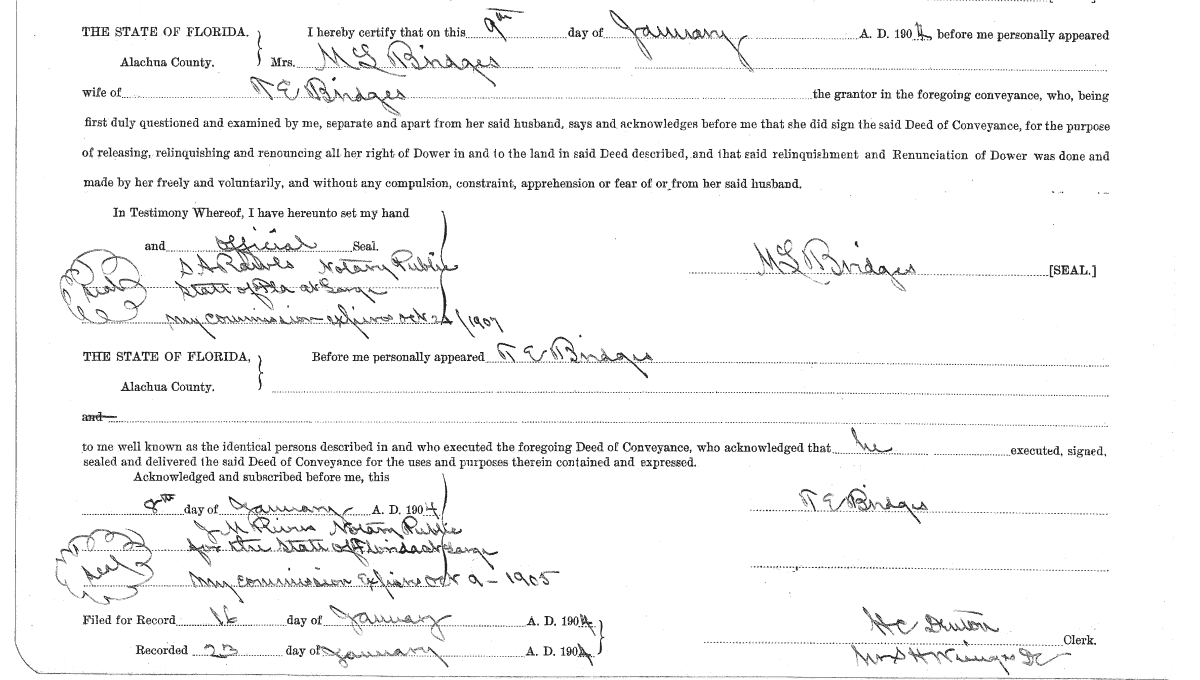 THE STATE OF FLORIDA. } I hereby certify that on this 9th day of January A. D. 1904 before me personally appeared
Alachua County. Mrs. M L Bridges
wife of T E Bridges the grantor in the foregoing conveyance, who, being
first duly questioned and examined by me, separate and apart from her said husband, says and acknowledges before me that she did sign the said Deed of Conveyance, for the purpose
of releasing, relinquishing and renouncing all her right of Dower in and to the land in said Deed described, and that said relinquishment and Renunciation of Dower was done and
made by her freely and voluntarily, and without any compulsion, constraint, apprehension or fear of or from her said husband.
In Testimony Whereof, I have hereunto set my hand
and official Seal.
S A Notary Public
Seal State of Fla at Large
My commission expires Oct /1907
M L Bridges [SEAL.]
THE STATE OF FLORIDA, } Before me personally appeared T E Bridges
Alachua County.
and
to me well known as the identical persons described in and who executed the foregoing Deed of Conveyance, who acknowledged that he executed, signed,
sealed and delivered the said Deed of Conveyance for the uses and purposes therein contained and expressed.
Acknowledged and subscribed before me, this
8th day of January A. D. 1904
T E Bridges
J M Rivers Notary Public
for the State of Florida at Large
Seal My commission Expires Oct 9 - 1905
Filed for Record 16 day of January A. D. 1904 }
Recorded 23 day of January A. D. 1904
H C Denton Clerk.